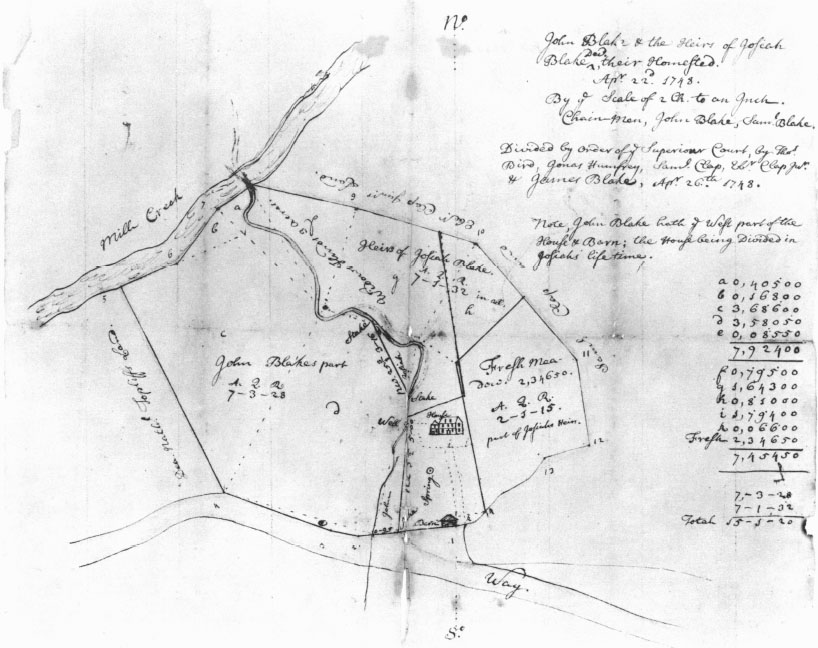 No.
John Blake & the Heirs of Josiah
Blake Decd. their Homested.
Apr. 22d. 1748.
By ye Scale of 2 Ch. to an Inch.
Chain-Men, John Blake, Saml. Blake.
Divided by order of ye Superiour Court, by Thos.
Bird, Jonas Humfrey, Saml. Clap, Ebr. Clap Junr.
& James Blake, Apr. 26.th 1748.
Note, John Blake hath ye West part of the
House & Barn; the House being Divided in
Josiahs life time.
a 0,40500
b 0,16800
c 3,68600
d 3,58050
e 0,08550
7,92400
f 0,79500
g 1,64300
h 0,81000
i 1,79400
k 0,06600
Fresh 2,34650
7,45450
7,-3-28
7-1-32
Total 15-1-20
Mill Creek
Ebr. Clap junrs Land.
Heirs of Josiah Blake.
A. Q. R.
7-1-32 in all.
g
h
b
6
5
c
John Blakes part
A. Q. R.
7-3-28
d
Stake
Stake
Well
House
Spring
Barn
John
Fresh Mea-
dow. 2,34650.
A. Q. R.
2-1-15.
part of Josiahs Heirs.
Clap
11
12
13
Land
Way.
So.